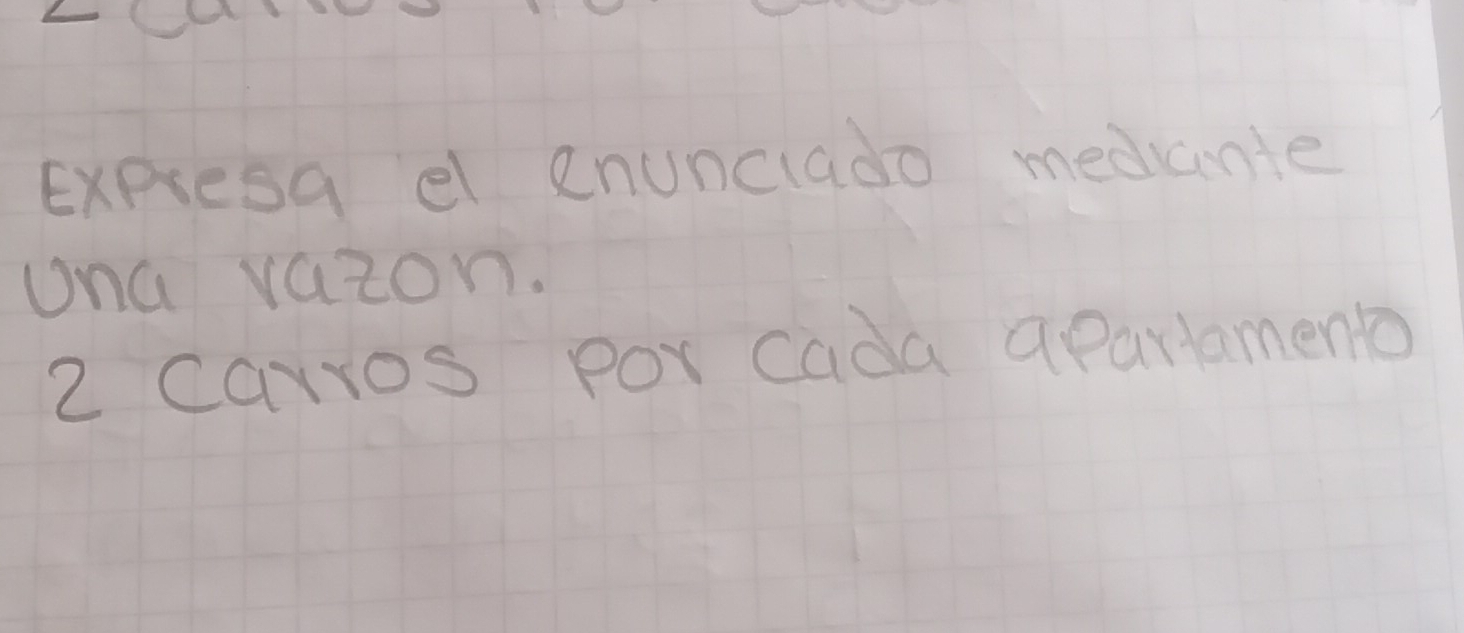 Expresa el enunciado mediante
una razon.
2 Carros por cada apartamento